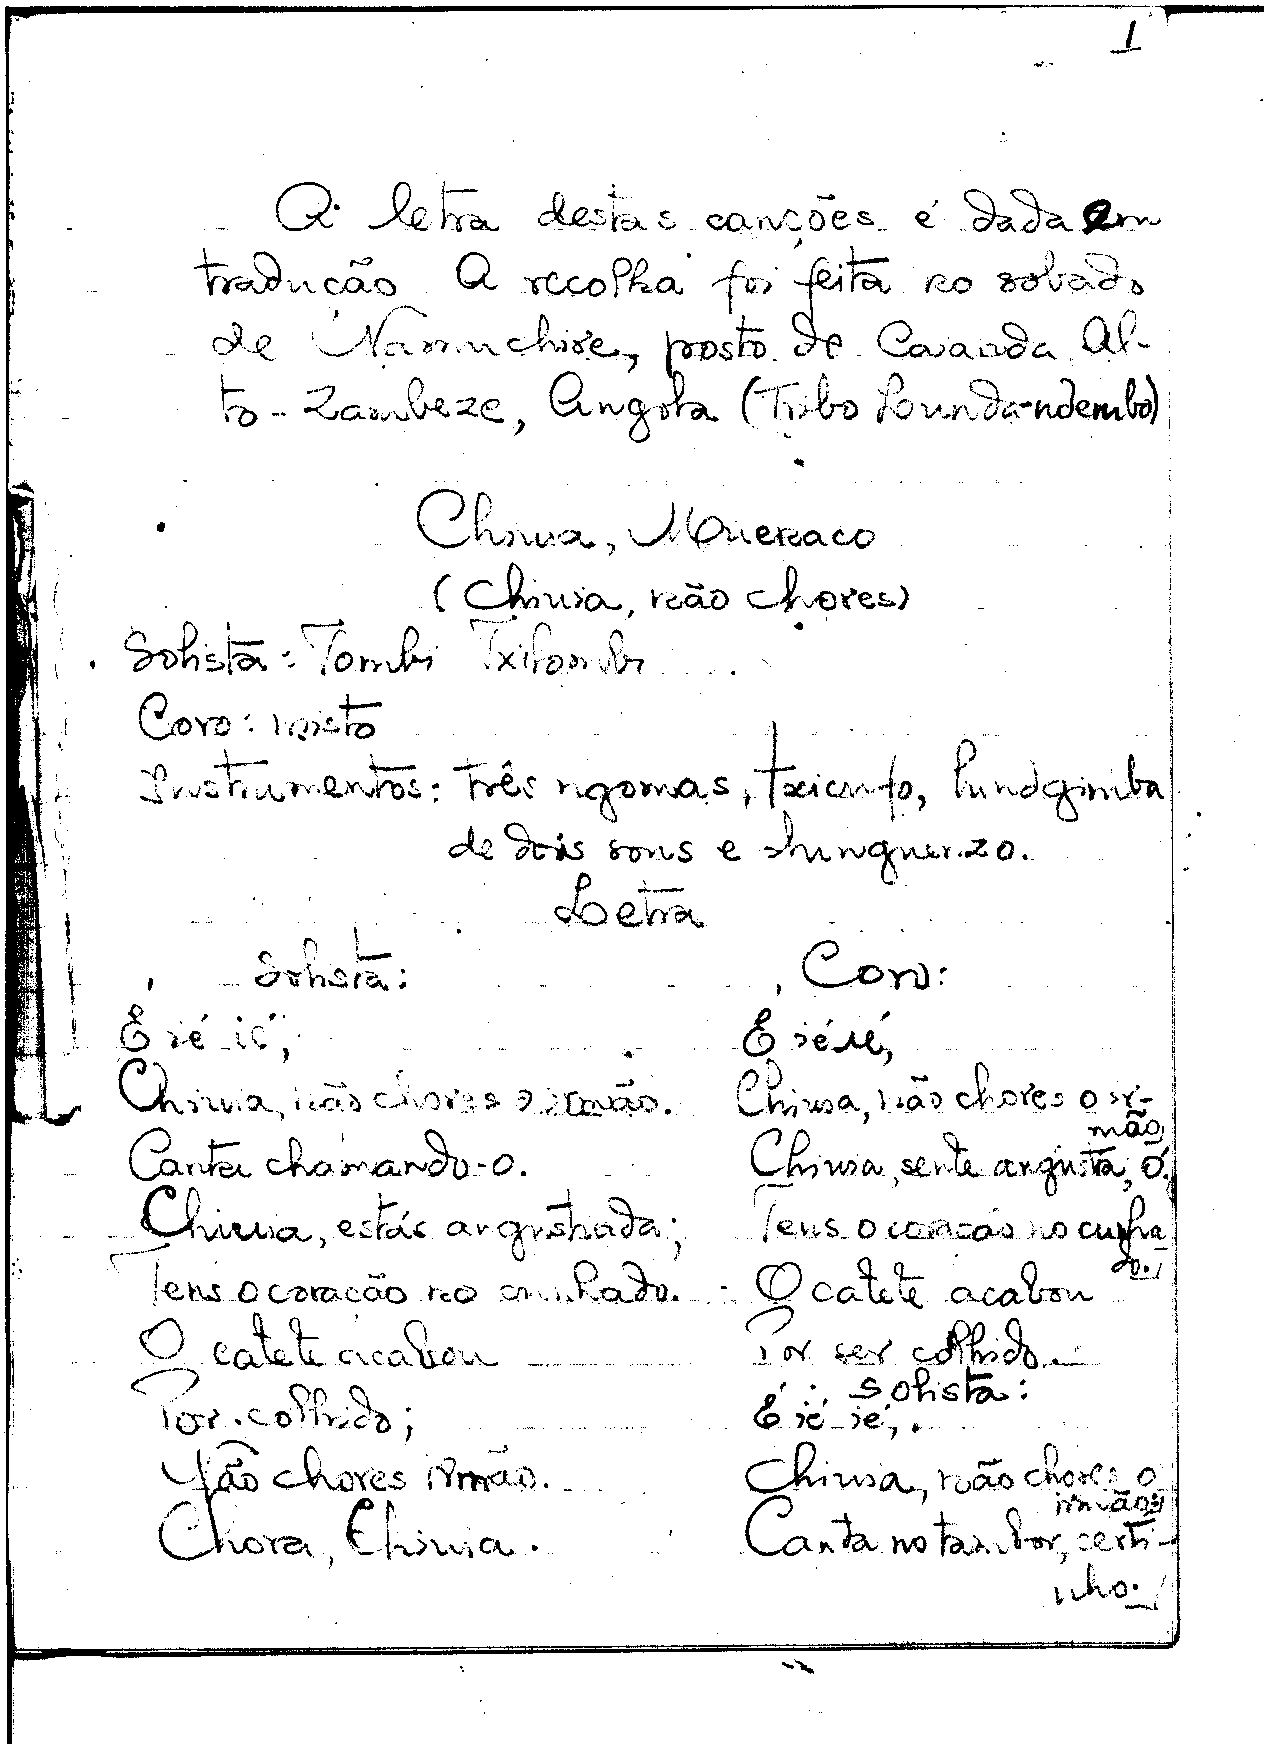 1
A letra destas canções é dada em
tradução A recolha foi feita no sobado
de posto de Al-
to-Zambeze, Angola (Tribo Lunda-ndembo)
(não chores)
Solista: Tombi
Coro: misto
Instrumentos: três ngomas,
de dois sons e
Letra
Solista:
É ié ié,
não chores o irmão.
Canta chamando-o.
estás angustiada;
Tens o coração no cunhado.
O catete acabou
Por colhido;
Não chores irmão.
Chora,
Coro:
É ié ié,
não chores o ir-
mão,
sente angústia, ó.
Tens o coração no cunha
do.
O catete acabou
Por ser colhido.
Solista:
É ié ié,
não chores o
irmão;
Canta no tambor, certi-
nho.